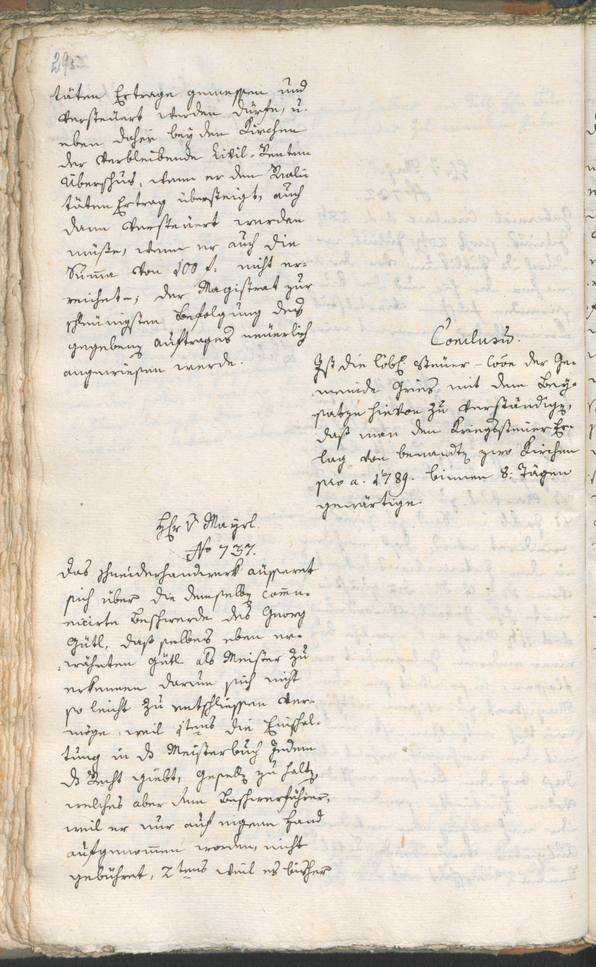 täten Ertrage gemessen und
versteuert werden dürfe, u.
eben daher bey den Kirchen
der verbleibende Zivil-Renten
Überschus, wenn er den Reali
täten Ertrag übersteigt, auch
dann versteuert werden
müße, wenn er auch die
Summa von 100 f: nicht er-
reichet-; der Magistrat zur
schleunigsten Befolgung des
gegebenen Auftrages neuerlich
angewiesen werde.
Conclusum.
Ist die löbl Steuer-
der Ge-
meinde Gries mit dem Bey-
satze hievon zu verständigen,
daß man den Kriegssteuer Er-
lag von benannten zwo Kirchen
pro a: 1789. binnen 8. Tägen
gewärtige.
Hr v Mayrl.
No 737.
Das Schneiderhandwerk äusseret
sich über die demselben comu-
nicirte Beschwerde des Georg
Gütl, daß selbes eben er-
wähnten Gütl als Meister zu
erkennen darum sich nicht
so leicht zu entschlüssen ver-
möge, weil 1tens die Einschal-
tung in ds Meisterbuch Jedem
ds Recht giebt, Gesellen zu halten,
welches aber dem Beschwerführer,
weil er nur auf eigene Hand
aufgenommen worden, nicht
gebühret, 2tens weil es bisher